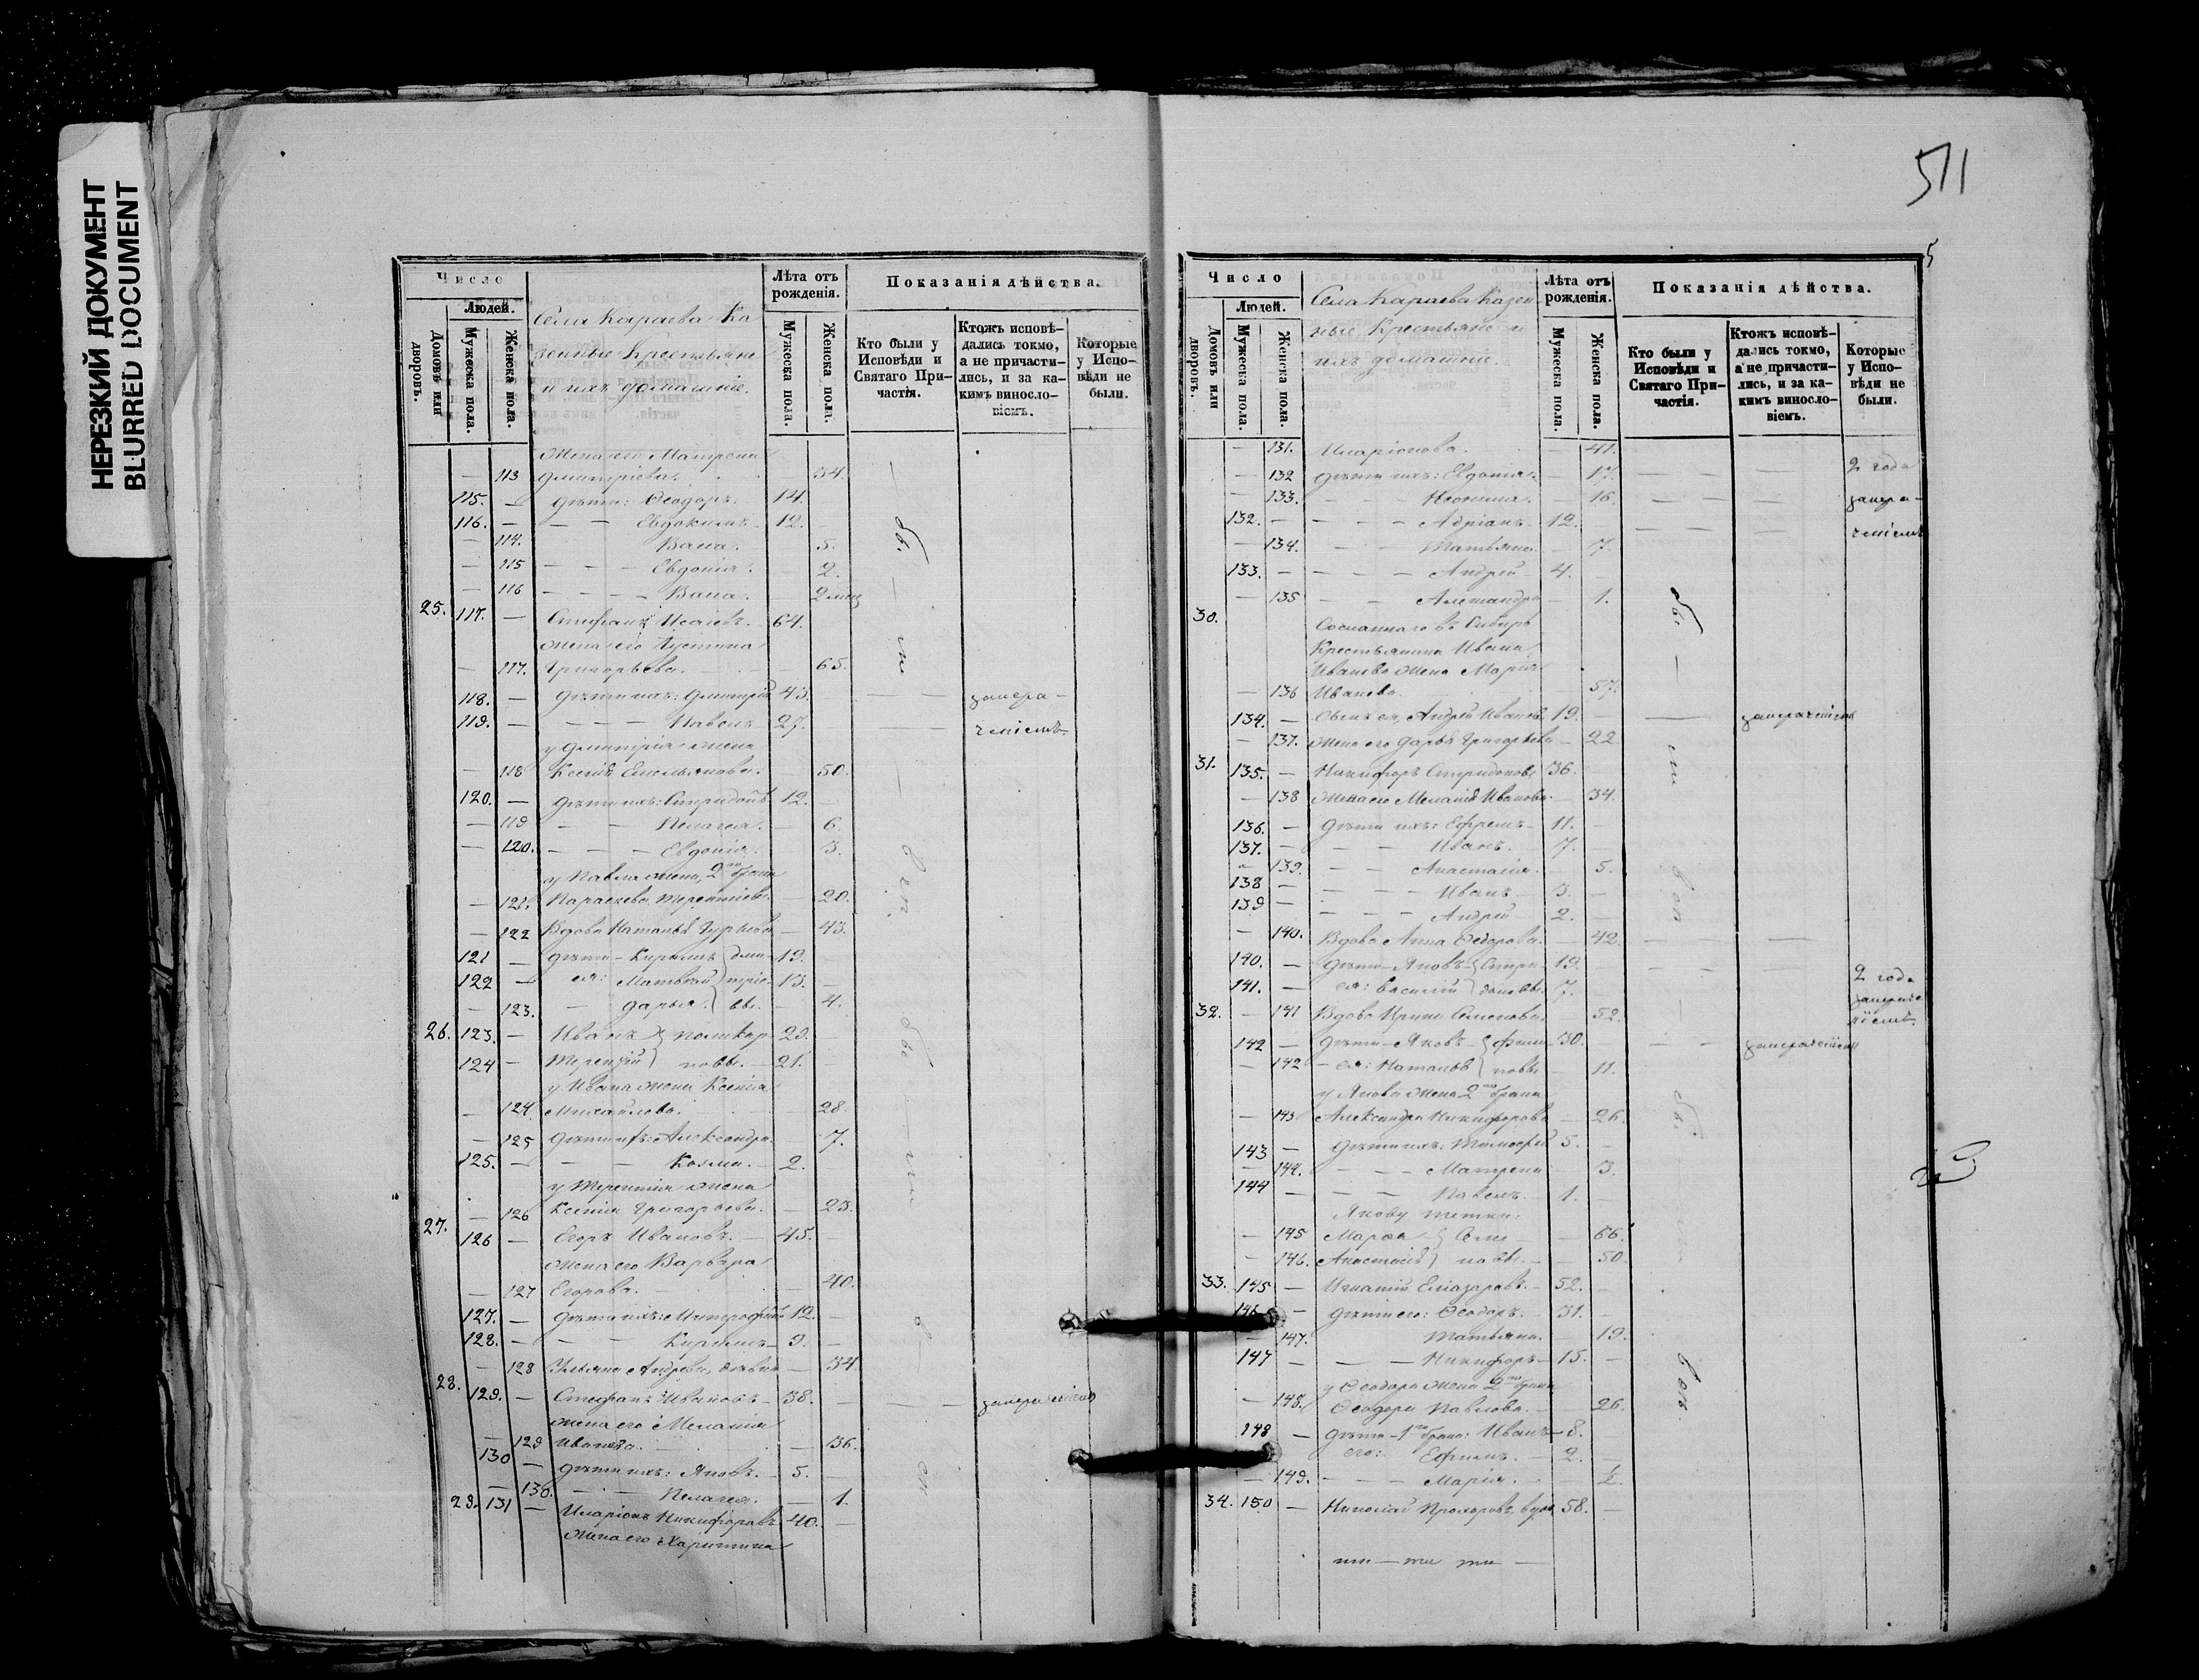 НЕРЕЗКИЙ ДОКУМЕНТ
BLURRED DOCUMENT
Число
Людей.
Домовъ или дворовъ.
Мужеска пола.
Женска пола.
Села Караева Ка
зенные Крестьяне
и ихъ домашніе.
Лѣта отъ рожденія.
Мужеска пола.
Женска пола.
Показанія дѣйства.
Кто были у Исповѣди и Святаго Причастія.
Ктожъ исповѣдались токмо, а не причастились, и за какимъ винословіемъ.
Которые у Исповѣди не были.
Жена его Матрена
— 113 Дмитріева. 34.
115. — Дѣти: Ѳеодоръ. 14.
116. — — — Евдокимъ 12.
— 114. Васса. 5.
— 115 — — — Евдокія. 2.
— 116 — — — Васса. 2 мѣс
25. 117. — Стефанъ Исаіевъ. 64.
Жена его Іустина
— 117. Григорьева. 65.
118. — Дѣти ихъ: Димитрій 43. — — занера-
119. — — — — Павелъ 27. — — ченіемъ
у Димитрія жена
— 118 Ксенія Емельянова. 50.
120. — Дѣти ихъ: Спиридонъ 12.
— 119 — — Пелагея. 6.
— 120. — — — Евдокія. 3.
у Павла жена, 2го брака
— 121. Параскева Терентіева. 20.
— 122 Вдова Наталья Гурьева 43.
121 — Дѣти — Кириллъ дми- 19.
122 — ея: Матвѣй тріе- 13.
— 123. — Дарья. вы. 4.
26. 123. — Иванъ Поликар- 29.
124 — Терентій повы. 21.
у Ивана жена Ксенія
— 124. Михайлова. 28.
— 125 Дѣти ихъ: Александра. 7.
125. — — — Козма. 2.
у Терентія жена
— 126 Ксенія Григорьева. 23.
27. 126 — Егоръ Ивановъ. 45.
Жена его Варвара
— 127 Егорова. 40.
127. — Дѣти ихъ: Митрофанъ 12.
128. — — — Кириллъ 9.
— 128 Ульяна Андреева, дѣвица 34.
28. 129. — Стефанъ Ивановъ 38. — — занераченіемъ
Жена его Меланія
— 129 Иванова. 36.
130 — Дѣти ихъ: Яковъ. 5.
— 130. — — Пелагея. 1.
29. 131 — Иларіонъ Никифоровъ 40.
Жена его Харитина
511
5
Число
Людей.
Домовъ или дворовъ.
Мужеска пола.
Женска пола.
Села Караева Казен
ные Крестьяне и
ихъ домашніе.
Лѣта отъ рожденія.
Мужеска пола.
Женска пола.
Показанія дѣйства.
Кто были у Исповѣди и Святаго Причастія.
Ктожъ исповѣдались токмо, а не причастились, и за какимъ винословіемъ.
Которые у Исповѣди не были.
— 131. Иларіонова. 41.
— 132 Дѣти ихъ: Евдокія. 17. — — 2 года
— 133. — — Неонила. 16. — — занера-
132. — — — — Адріанъ 12. — — ченіемъ
— 134. — — Татьяна. 7.
133. — — — — Андрей 4.
— 135 — — Александра 1.
30. Сосланнаго въ Сибирь
Крестьянина Ивана
Иванова жена Марія
— 136 Иванова. 57.
134. — Сынъ ея, Андрей Ивановъ 19. — занераченіемъ
— 137. Жена его Дарья Григорьева 22
31. 135. — Никифоръ Спиридоновъ 36.
— 138 Жена его Меланія Иванова 34.
136. — Дѣти ихъ: Ефремъ 11.
137. — — Иванъ. 7.
— 139. — — Анастасія. 5.
138 — — — — Иванъ 3.
139 — — — — Андрей 2.
— 140. Вдова Анна Ѳедорова. 42. — — —
140. — Дѣти — Яковъ Спири- 19. 2 года
141. — ея: Василій доновы. 7. занераче
32. — 141 Вдова Ирина Семенова. 52. ніемъ.
142 — Дѣти — Яковъ Фили- 30. — — занераченіемъ
— 142 — ея: Наталья повы 11.
у Якова жена 2го брака
— 143 Александра Никифорова 26.
143 — Дѣти ихъ: Тимоѳей 5.
— 144. — — — Матрена 3.
144 — — — Павелъ. 1.
Якову тетки:
— 145 Марѳа Семе- 66.
— 146. Анастасія новы. 50.
33. 145 — Игнатій Елизаровъ 52.
146 — Дѣти его: Ѳеодоръ. 31.
— 147. Татьяна. 19.
147 — — — Никифоръ 15.
у Ѳеодора жена 2го брака
— 148. Ѳеодора Павлова. 26.
148 — Дѣти — 1го брака: Иванъ 8.
его: Ефимъ. 2.
— 149. — — — Марія. ½.
34. 150 — Николай Прохоровъ, вдов. 58.